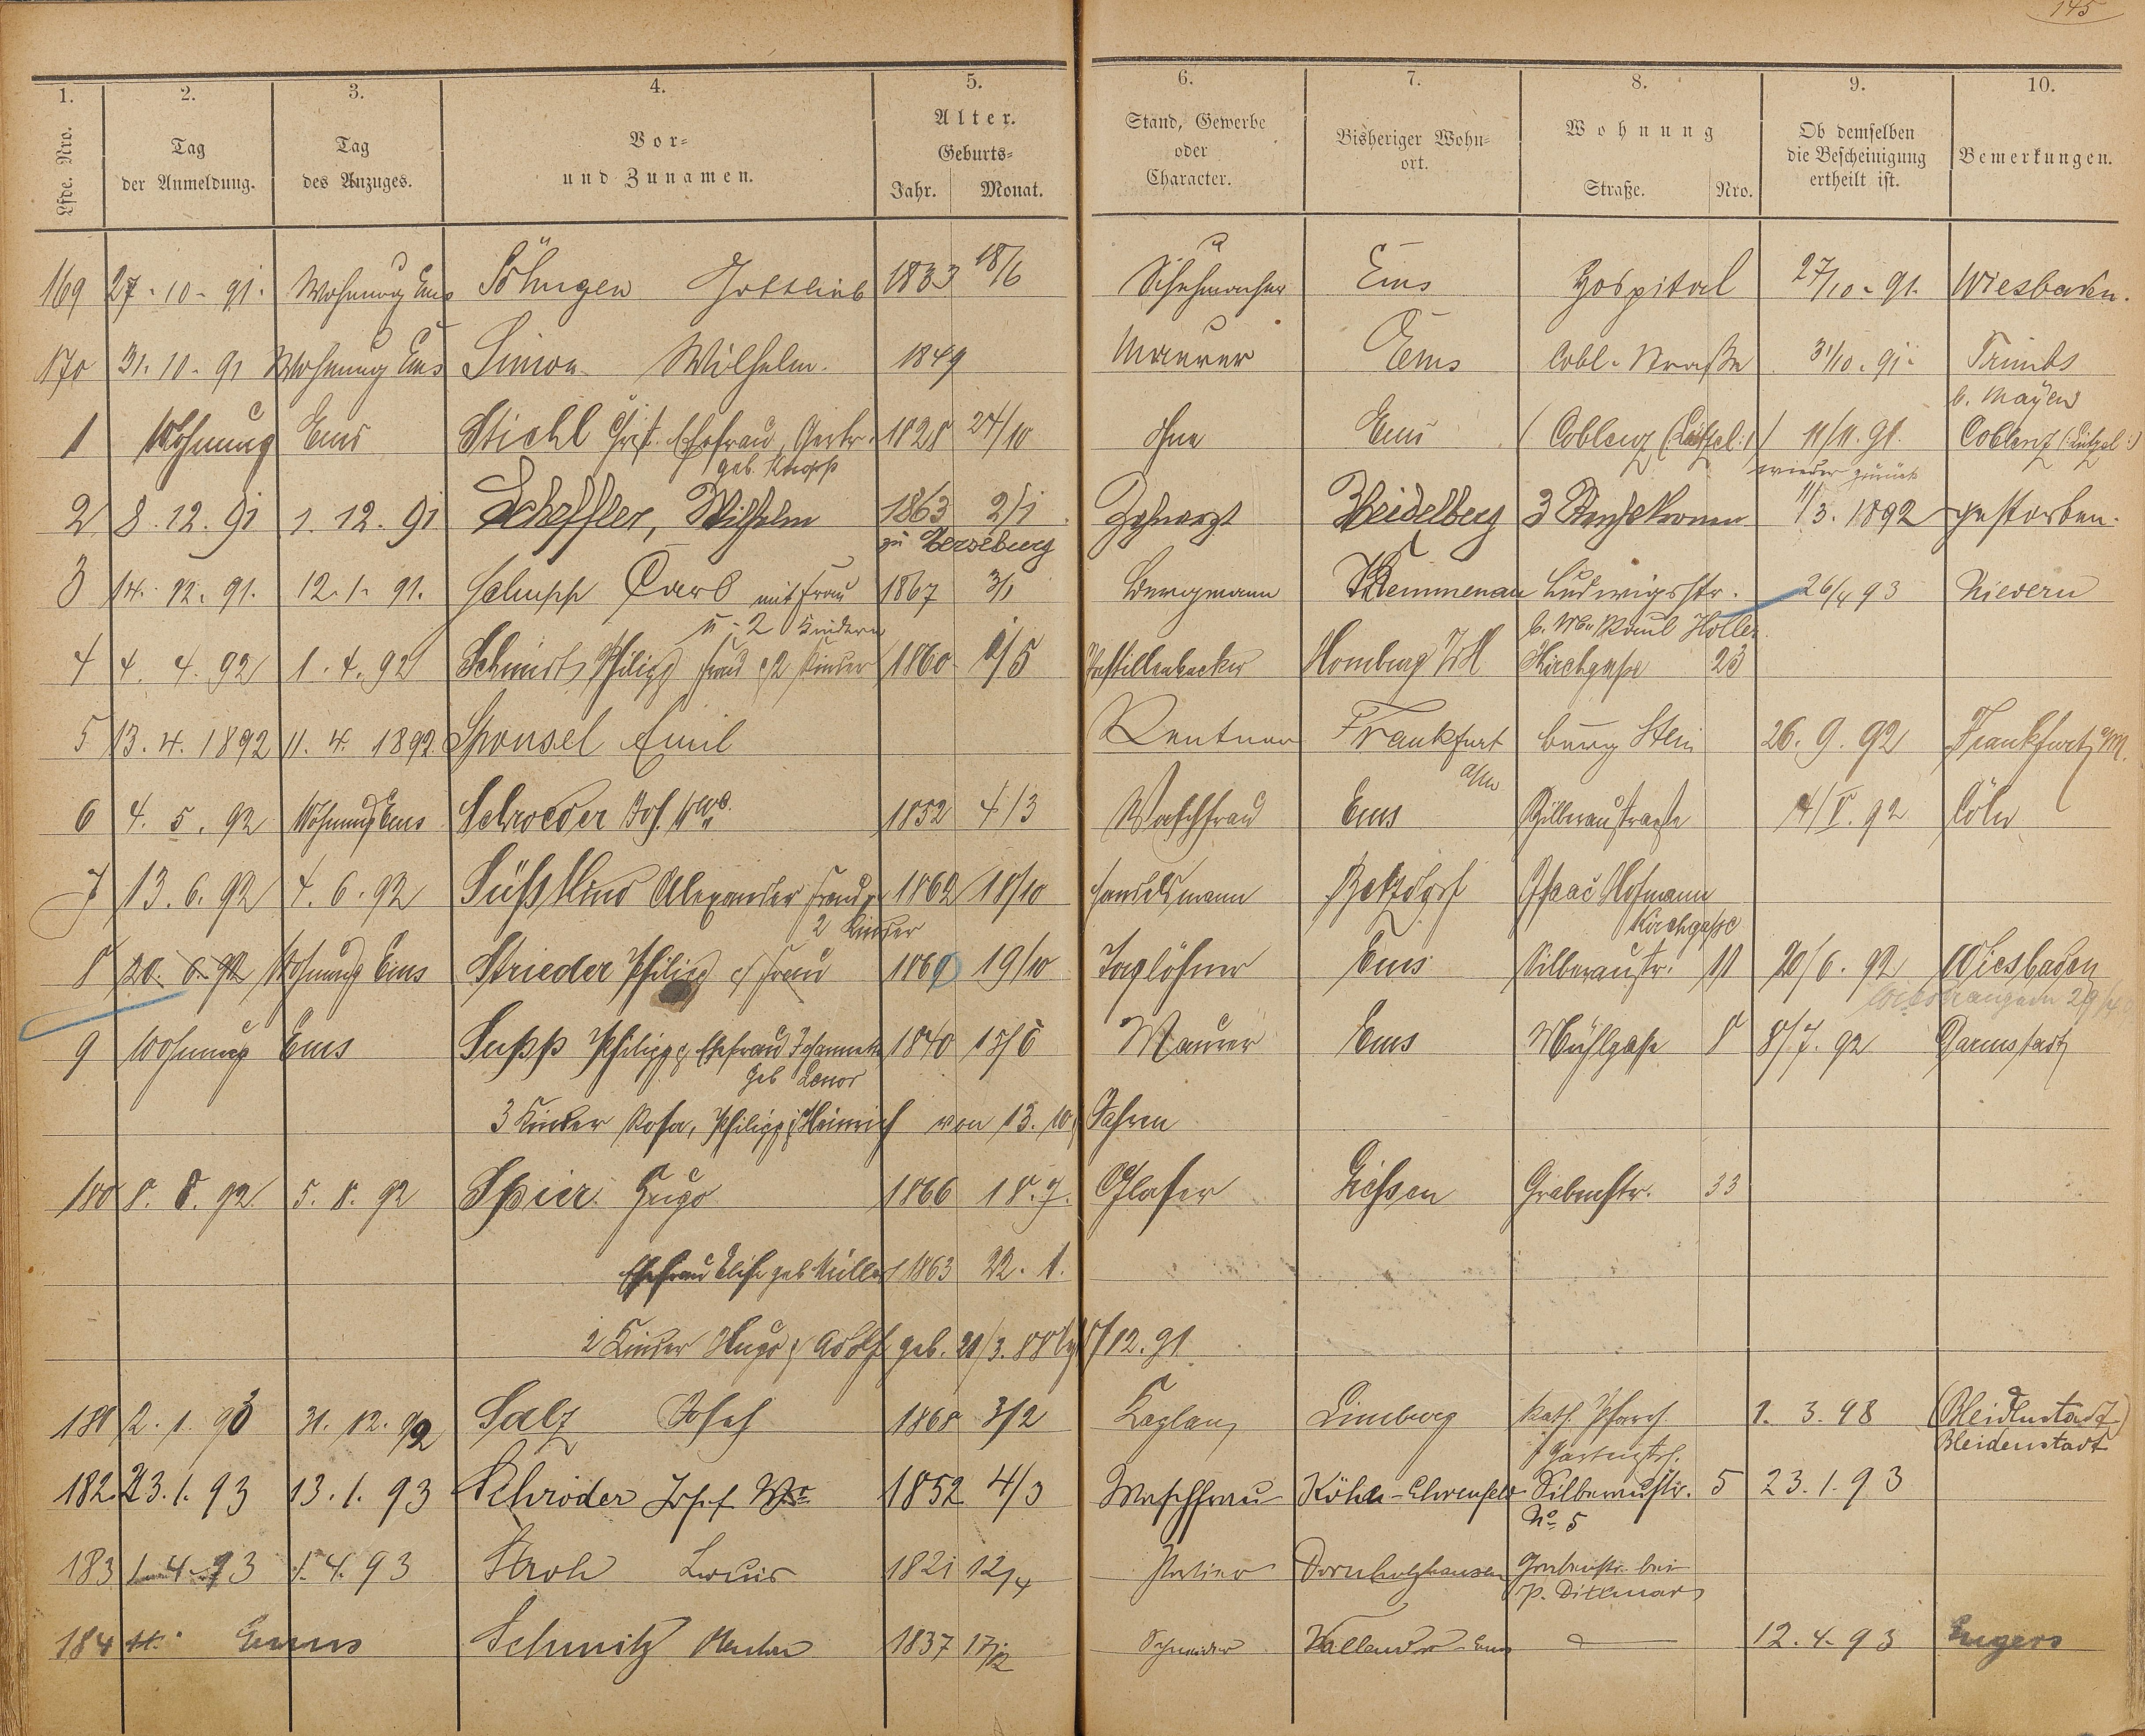 145
1. 2. 3. 4. 5. 6. 7. 8. 9. 10.
Lfde. Nro. Tag der Anmeldung. Tag des Anzuges. Vor- und Zunamen. Alter. Geburts- Jahr. Monat. Stand, Gewerbe oder Character. Bisheriger Wohn- ort. Wohnung Straße. Nro. Ob demselben die Bescheinigung ertheilt ist. Bemerkungen.
169 27.-10-91. Wohnung Ems Söhngen Gottlieb 1833 18/6 Schuhmacher Ems Hospital 27/10-91. Wiesbaden.
170 31.10-91 Wohnung Ems Simon Wilhelm. 1849 Maurer Ems Cobl. Straße 31/10.91. Trimbs
b. Mayen
1 Wohnung Ems Stiehl Ehefrau, 1828 24/10 ohne Ems Coblenz (Lützel:) 11/11.91. Coblenz (:Lützel:)
geb. Knopp wieder zurück
2 8.12.91 1.12.91 Scheffler, Wilhelm 1863 2/1 Zahnarzt Heidelberg 3 Reichskronen 11/3.1892 gestorben.
zu Merseburg
3 14.12.91. 12.1.91. Schupp Carl mit Frau 1867 3/1 Bergmann Kemmenau Ludwigstr. 26/4 93 Nievern
u-2 Kindern b. Holler
4 4.4.92 1.4.92 Schmidt Philipp Frau & 2 Kinder 1860 1/5 Pastillenbäcker Homburg Kirchgasse 23
5 13.4.1892 11.4.1892 Sponsel Emil Rentner Frankfurt burg Stein 26.9.92 Frankfurt a/M.
a/M
6 4.5.92 Wohnung Ems Schroeder Jos. Wwe. 1852 4/3 Waschfrau Ems Silberaustraße 4/V.92 Cöln
7 13.6.92 4.6.92 Süßkind Alexander Frau & 1862 18/10 Handelsmann Betzdorf Isaac Hofmann
2 Kinder Kirchgasse
8 20.6.92 Wohnung Ems Strieder Philipp & Frau 1860 19/10 Taglöhner Ems Silberaustr. 11 20/6.92 Wiesbaden
9 Wohnung Ems Supp Philipp & Ehefrau Johannette 1840 15/6 Maurer Ems Mühlgasse 8 8/7.92 Darmstadt
geb
3 Kinder Rosa, Philipp & Heinrich von 13. 10 Jahren
180 8.8.92. 5.8.92 Spier Hugo 1866 18.7. Glaser Giessen Grabenstr. 33
Ehefrau Elise geb Müller 1863 22.1.
2 Kinder Hugo & Adolf geb. 21/3.88 /12.91
181 2.1.93 31.12.92 Salz Josef 1868 3/2 Kaplan Limburg kath. Pfarrh. 1.3.98 (Bleidenstadt)
Bleidenstadt
182 23.1.93 13.1.93 Schröder Josef Wwe 1852 4/3 Waschfrau Köln-Ehrenfeld Silberaustr. 5 23.1.93
No 5
183 1.4.93 1.4.93 Stroh Louis 1821 12/4 Portier Dornholzhausen Grabenstr. bei
P. Dittmar
184 Ems Schmitz 1837 17/12 Schneider Vallendar-Ems 12.4.93 Engers